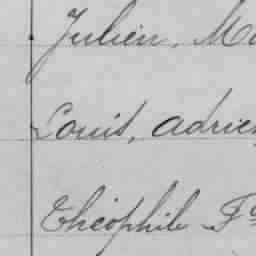 Julien, Ma
Louis, adrien
Théophile Fs